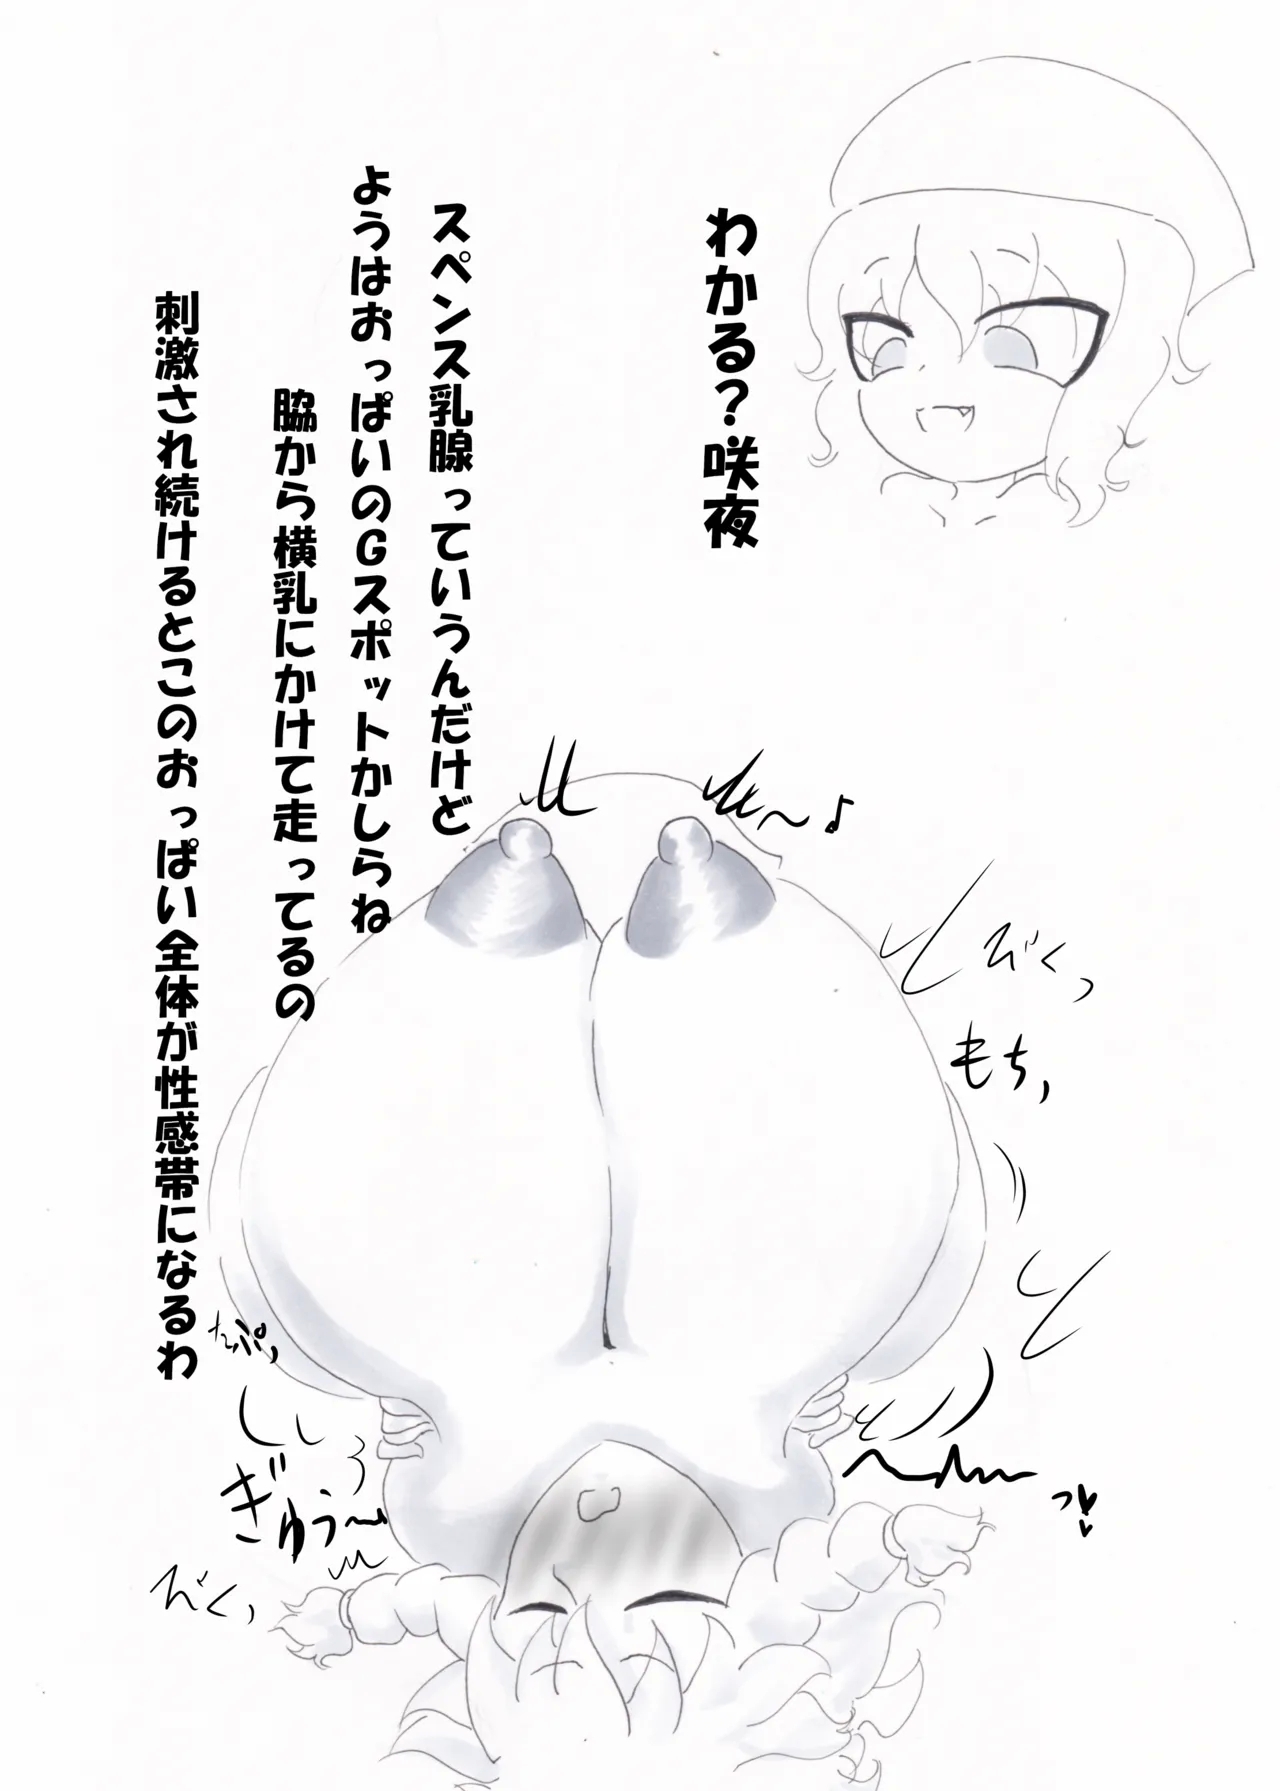 わかる？咲夜
スペンス乳腺っていうんだけど
ようはおっぱいのGスポットかしらね
脇から横乳にかけて走ってるの
刺激され続けるとこのおっぱい全体が性感帯になるわ
びくっ
もち,
たぷっ
ぎゅう〜
びくっ